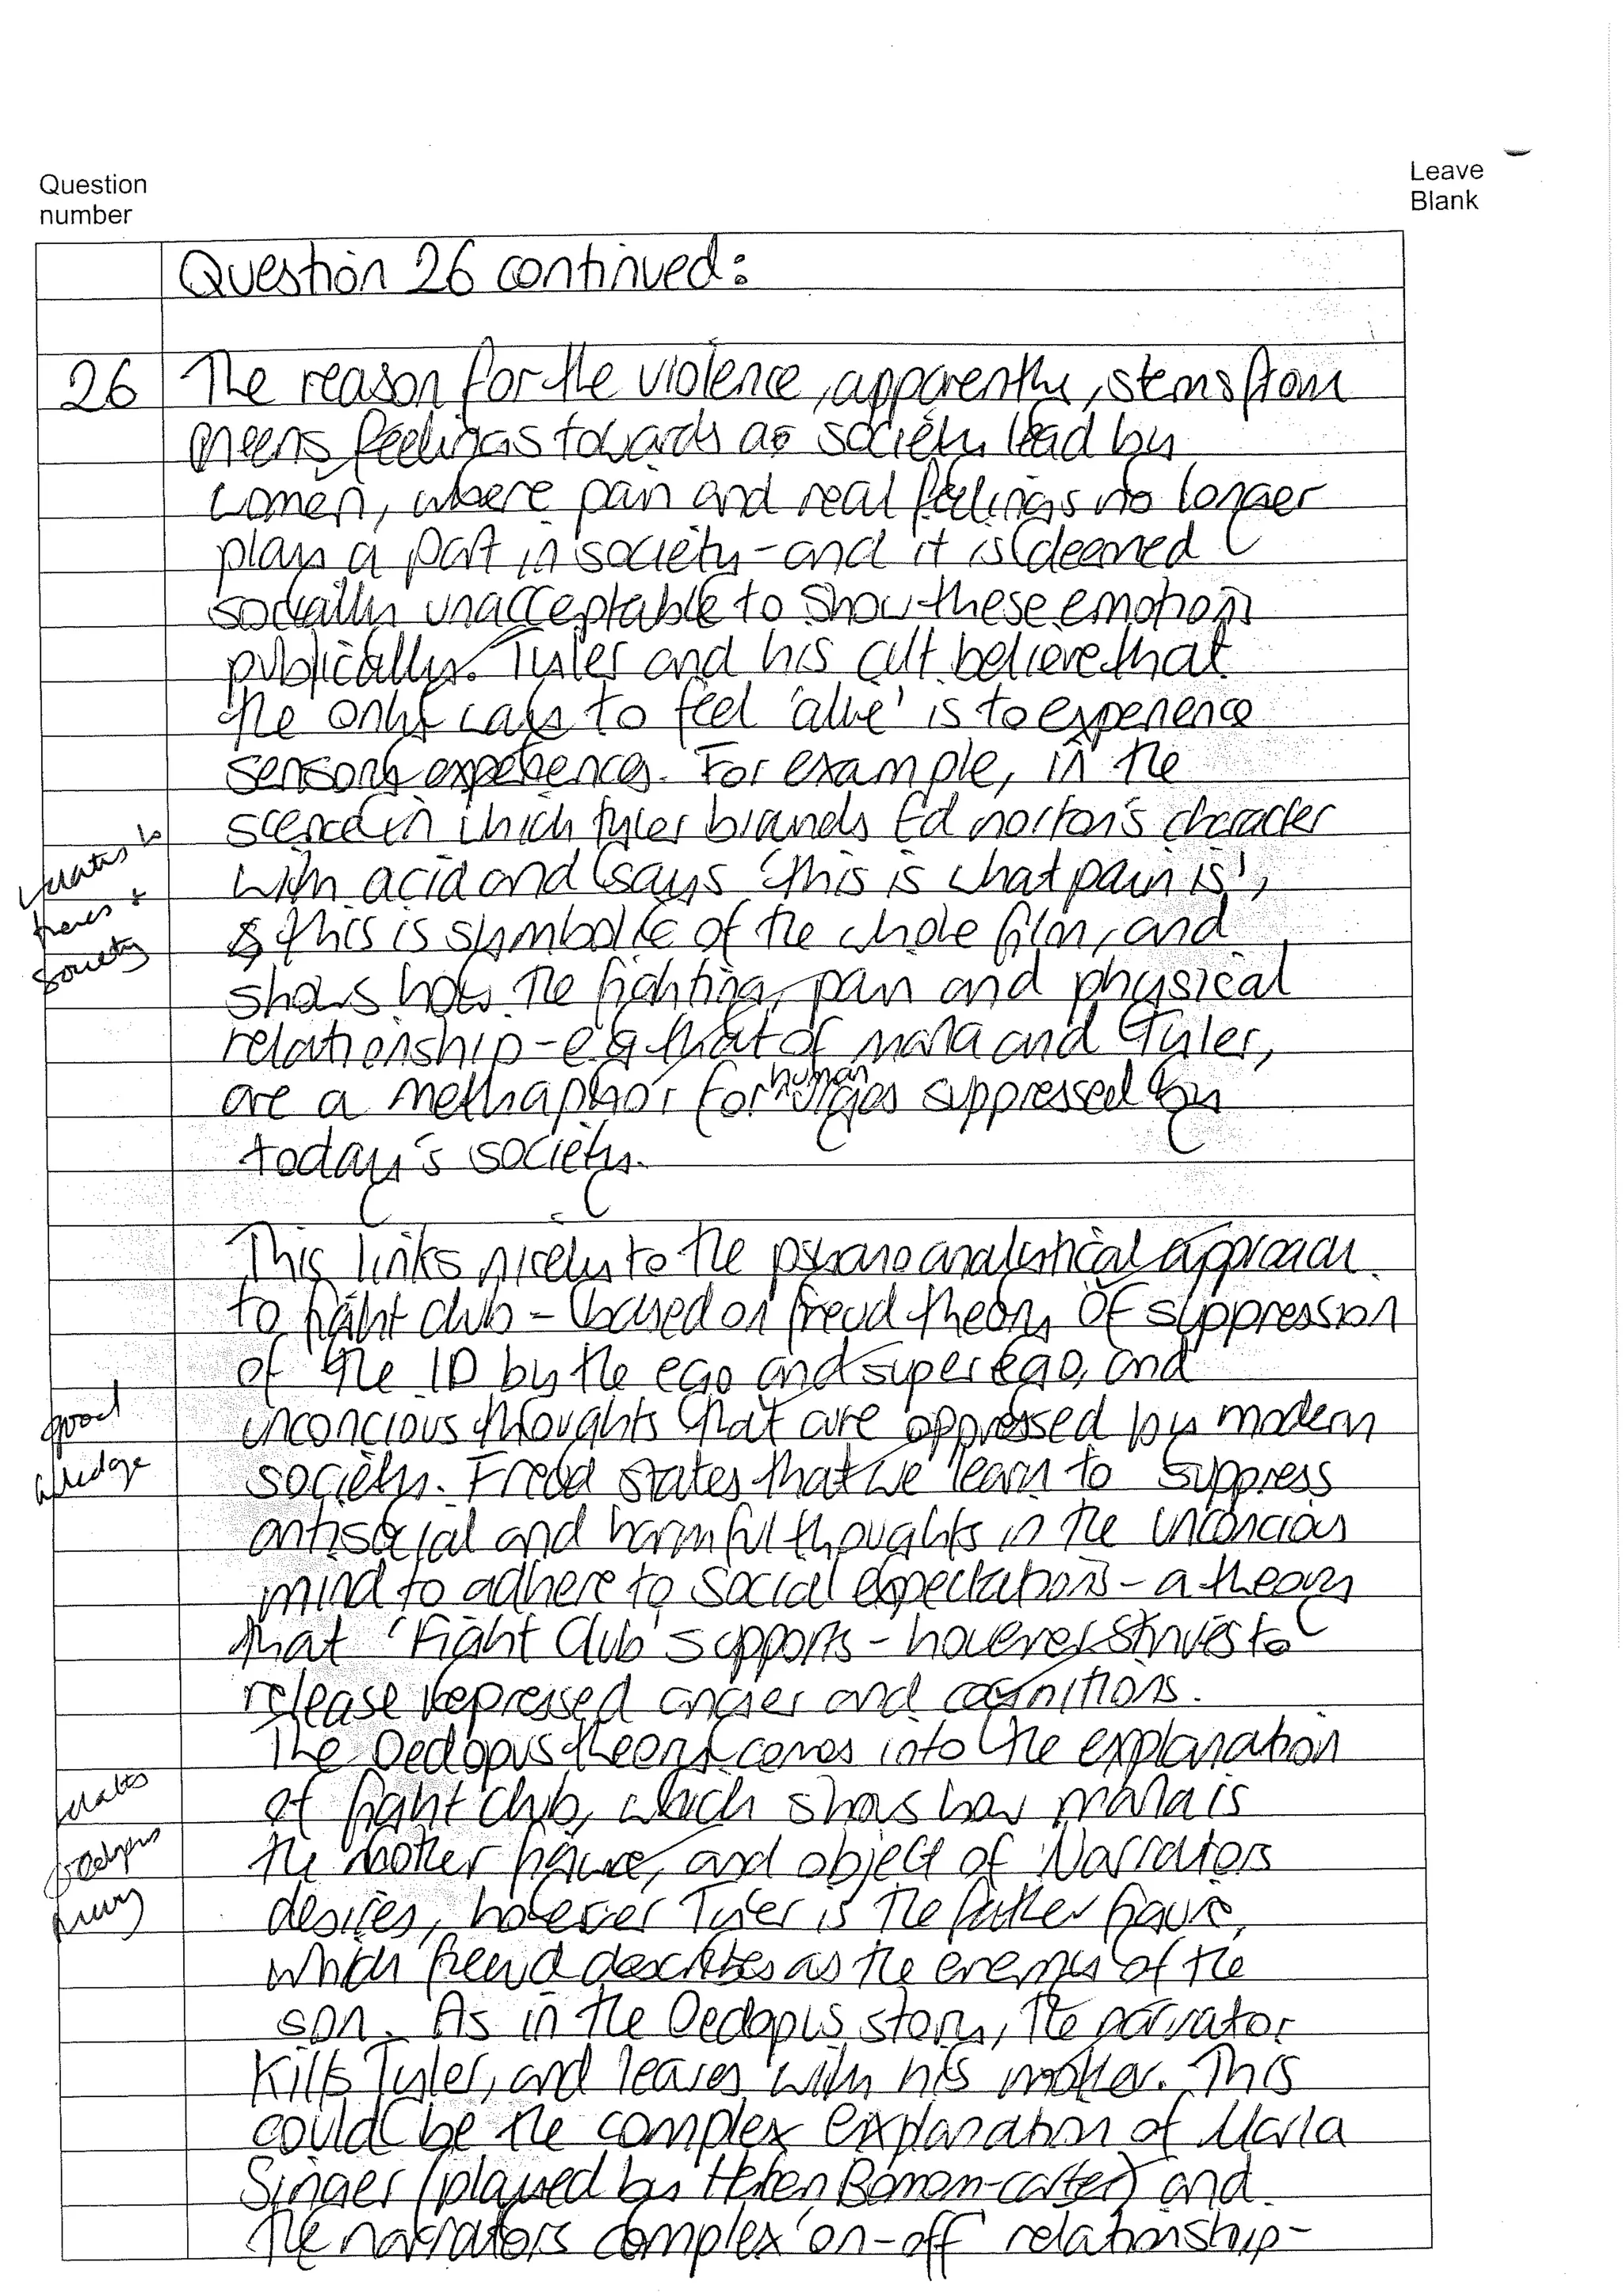 Question
number
Leave
Blank
Question 26 continued:
26 The reason for the violence, apparently, stems from
mens feelings towards a society lead by
women, where pain and real feelings no longer
play a part in society - and it is deemed
socially unacceptable to show these emotions
publically. Tyler and his cult believe that
the only way to feel 'alive' is to experience
sensory experiences. For example, in the
scene in which tyler brands Ed norton's character
with acid and says 'this is what pain is',
this is symbolic of the whole film, and
shows how the fighting, pain and physical
relationship - eg that of marla and Tyler,
are a methaphor for human urges suppressed by
today's society.
relates to
themes +
society
This links nicely to the psycho analytical approach
to fight club - based on freud theory of suppression
of the ID by the ego and super ego, and
unconcious thoughts that are oppressed by modern
society. Freud states that we learn to suppress
antisocial and harmful thoughts in the unconcious
mind to adhere to social expectations - a theory
that 'Fight Club' supports - however strives to
release repressed anger and cognitions.
good
The Oedopus theory comes into the explanation
of fight club, which shows how marla is
the mother figure, and object of Narrators
desires, however Tyler is the father figure,
which freud describes as the enemy of the
son. As in the Oedopus story, the narrator
kills Tyler, and leaves with his mother. This
could be the complex explanation of Marla
Singer (played by Helen Bonam-carter) and
the narrators complex 'on-off' relationship-
relates